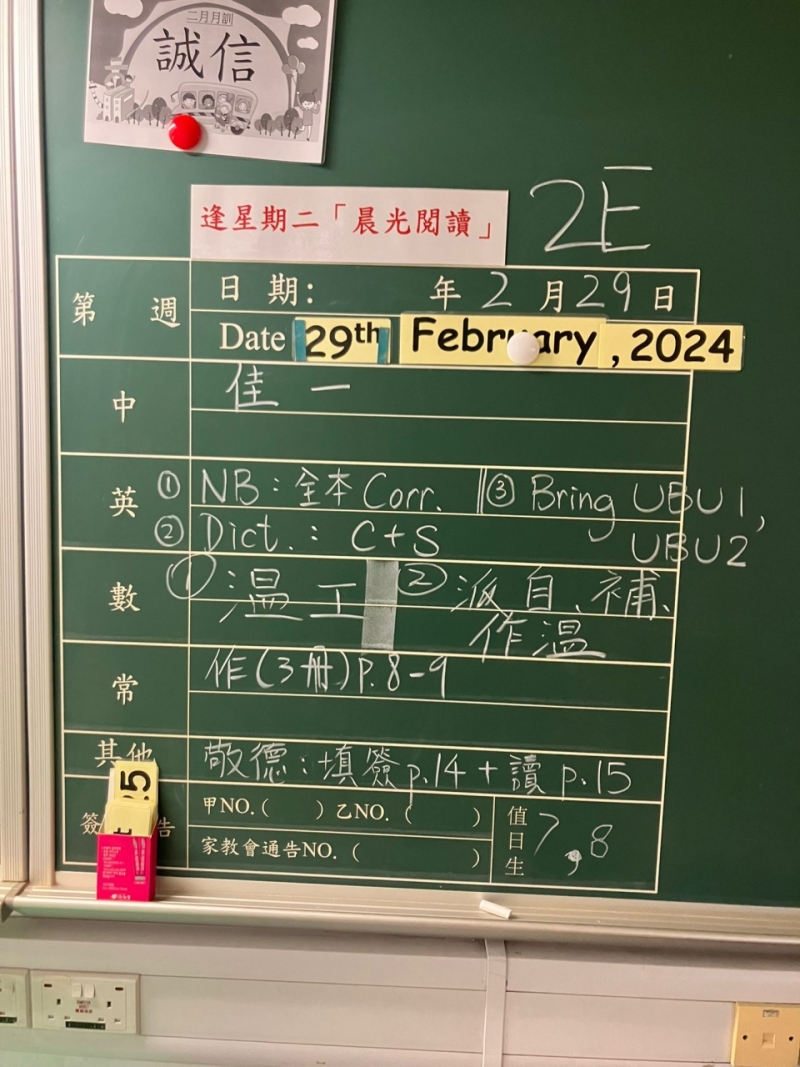 二月月訓
誠信
逢星期二「晨光閱讀」
2E
第 週
日期: 年 2 月 29 日
Date 29th February, 2024
中
佳一
英
① NB: 全本 Corr.
② Dict.: C+S
③ Bring UBU1,
UBU2
數
① 溫工
② 派自、補、
作溫
常
作(3冊)p.8-9
其他
敬德:填簽p.14+讀 p.15
簽 告
甲NO.( ) 乙NO.( )
家教會通告NO.( )
值日生
7,8